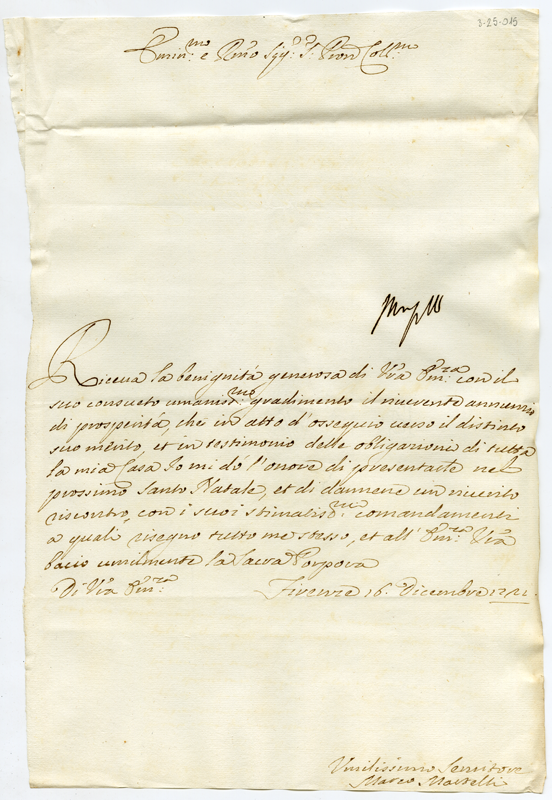 3-25-015
Emin.mo e Rmo Sig.r P.ron Coll.mo
Riceva la benignità generosa di Vra Em.za con il
suo consueto umanis.mo gradimento il riverente annunzio
di prosperità, che in atto d'ossequio verso il distinto
suo merito, et in testimonio delle obligazioni di tutta
la mia Casa Io mi dò l'onore di presentarle nel
prossimo Santo Natale, et di darmene un riverito
riscontro, con i suoi stimatis.mi comandamenti
a quali risegno tutto me stesso, et all' Em.za Vra
bacio umilmente la Sacra Porpora
Di Vra Em.za Firenze 16. Dicembre 1721.
Umilissimo Servitore
Marco Martelli